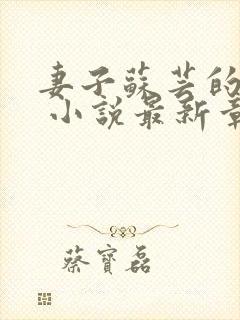 妻子蘇芸的
小說最新章
蔡寶磊